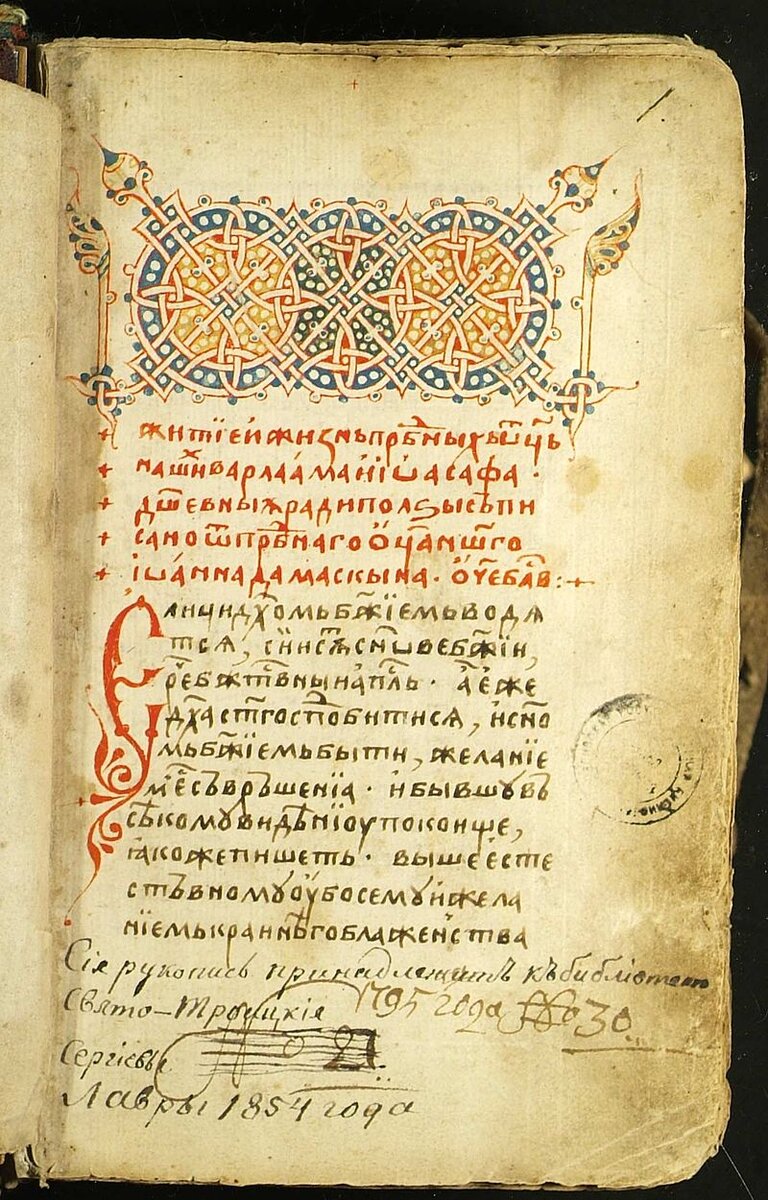 1.
+ житїе и жизнь прпⷣбныхъ ѿц҃ъ
+ нашиⷯ варлаама и їѡасафа ·
+ дш҃евныѧ ради ползы съпи
+ сано ѿ прпⷣбнаго оц҃а нш҃го
+ їѡанна дамаскына · оч҃е бл҃ви :+
Єлици дх҃омь бж҃їемь водѧ
тсѧ, сїи сѫⷮ сн҃ове бж҃їи,
реⷱ бжⷭтвныи апⷭлъ · а еже
дх҃а ст҃го сподобитисѧ, и сно
мь бж҃їемь быти, желанїе
мъ съвръшенїа · и бывшꙋ въ
сѣкомꙋ видѣнїоу покоище,
ꙗкоже пишеть · выше есте
стъвномꙋ оубо семꙋ и жела
нїемь краинѣго блаженьства
Сія рукопись принадлежитъ къ библіотекѣ
Свято-Троицкія 1795 года № 30
Сергіевы
Лавры 1854 года